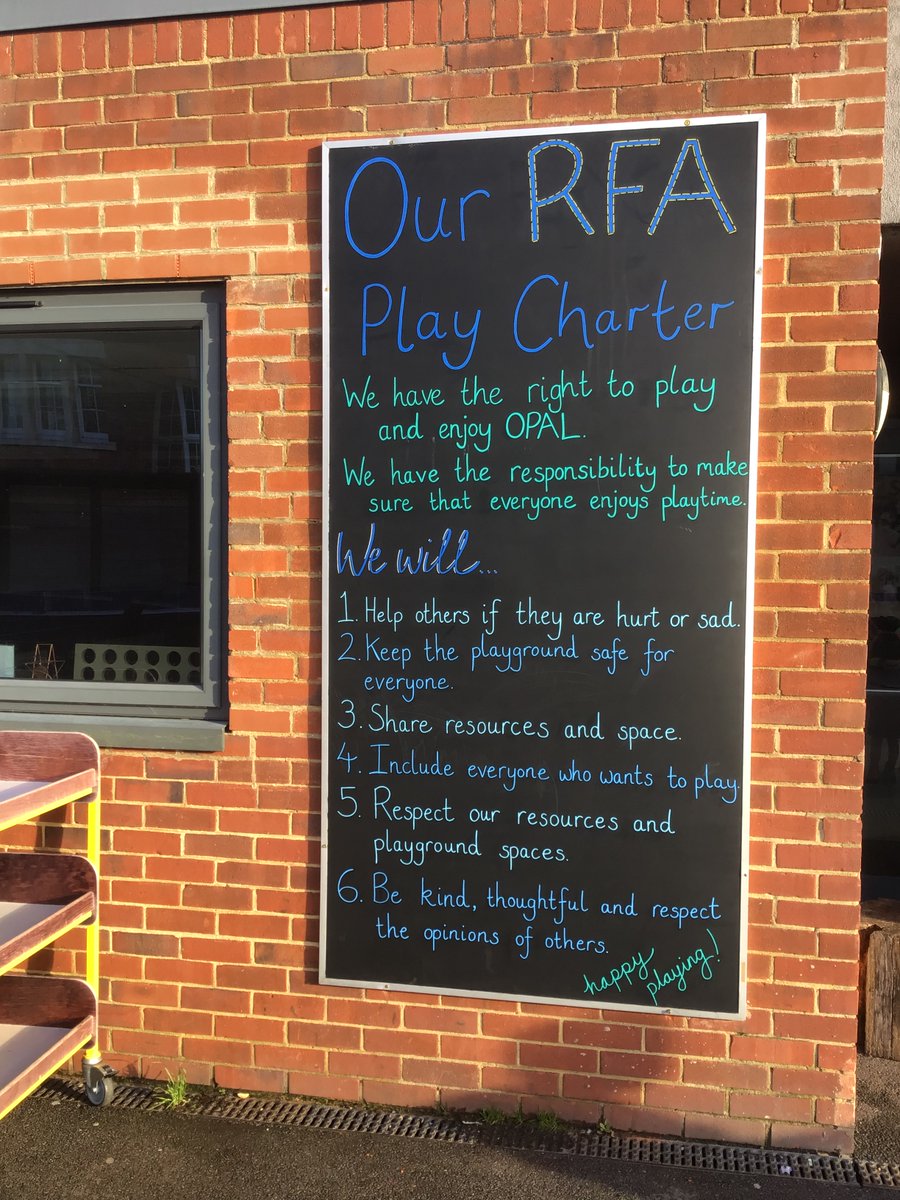 Our RFA
Play Charter
We have the right to play
and enjoy OPAL.
We have the responsibility to make
sure that everyone enjoys playtime.
We will...
1. Help others if they are hurt or sad.
2. Keep the playground safe for
everyone.
3. Share resources and space.
4. Include everyone who wants to play.
5. Respect our resources and
playground spaces.
6. Be kind, thoughtful and respect
the opinions of others.
happy
playing!